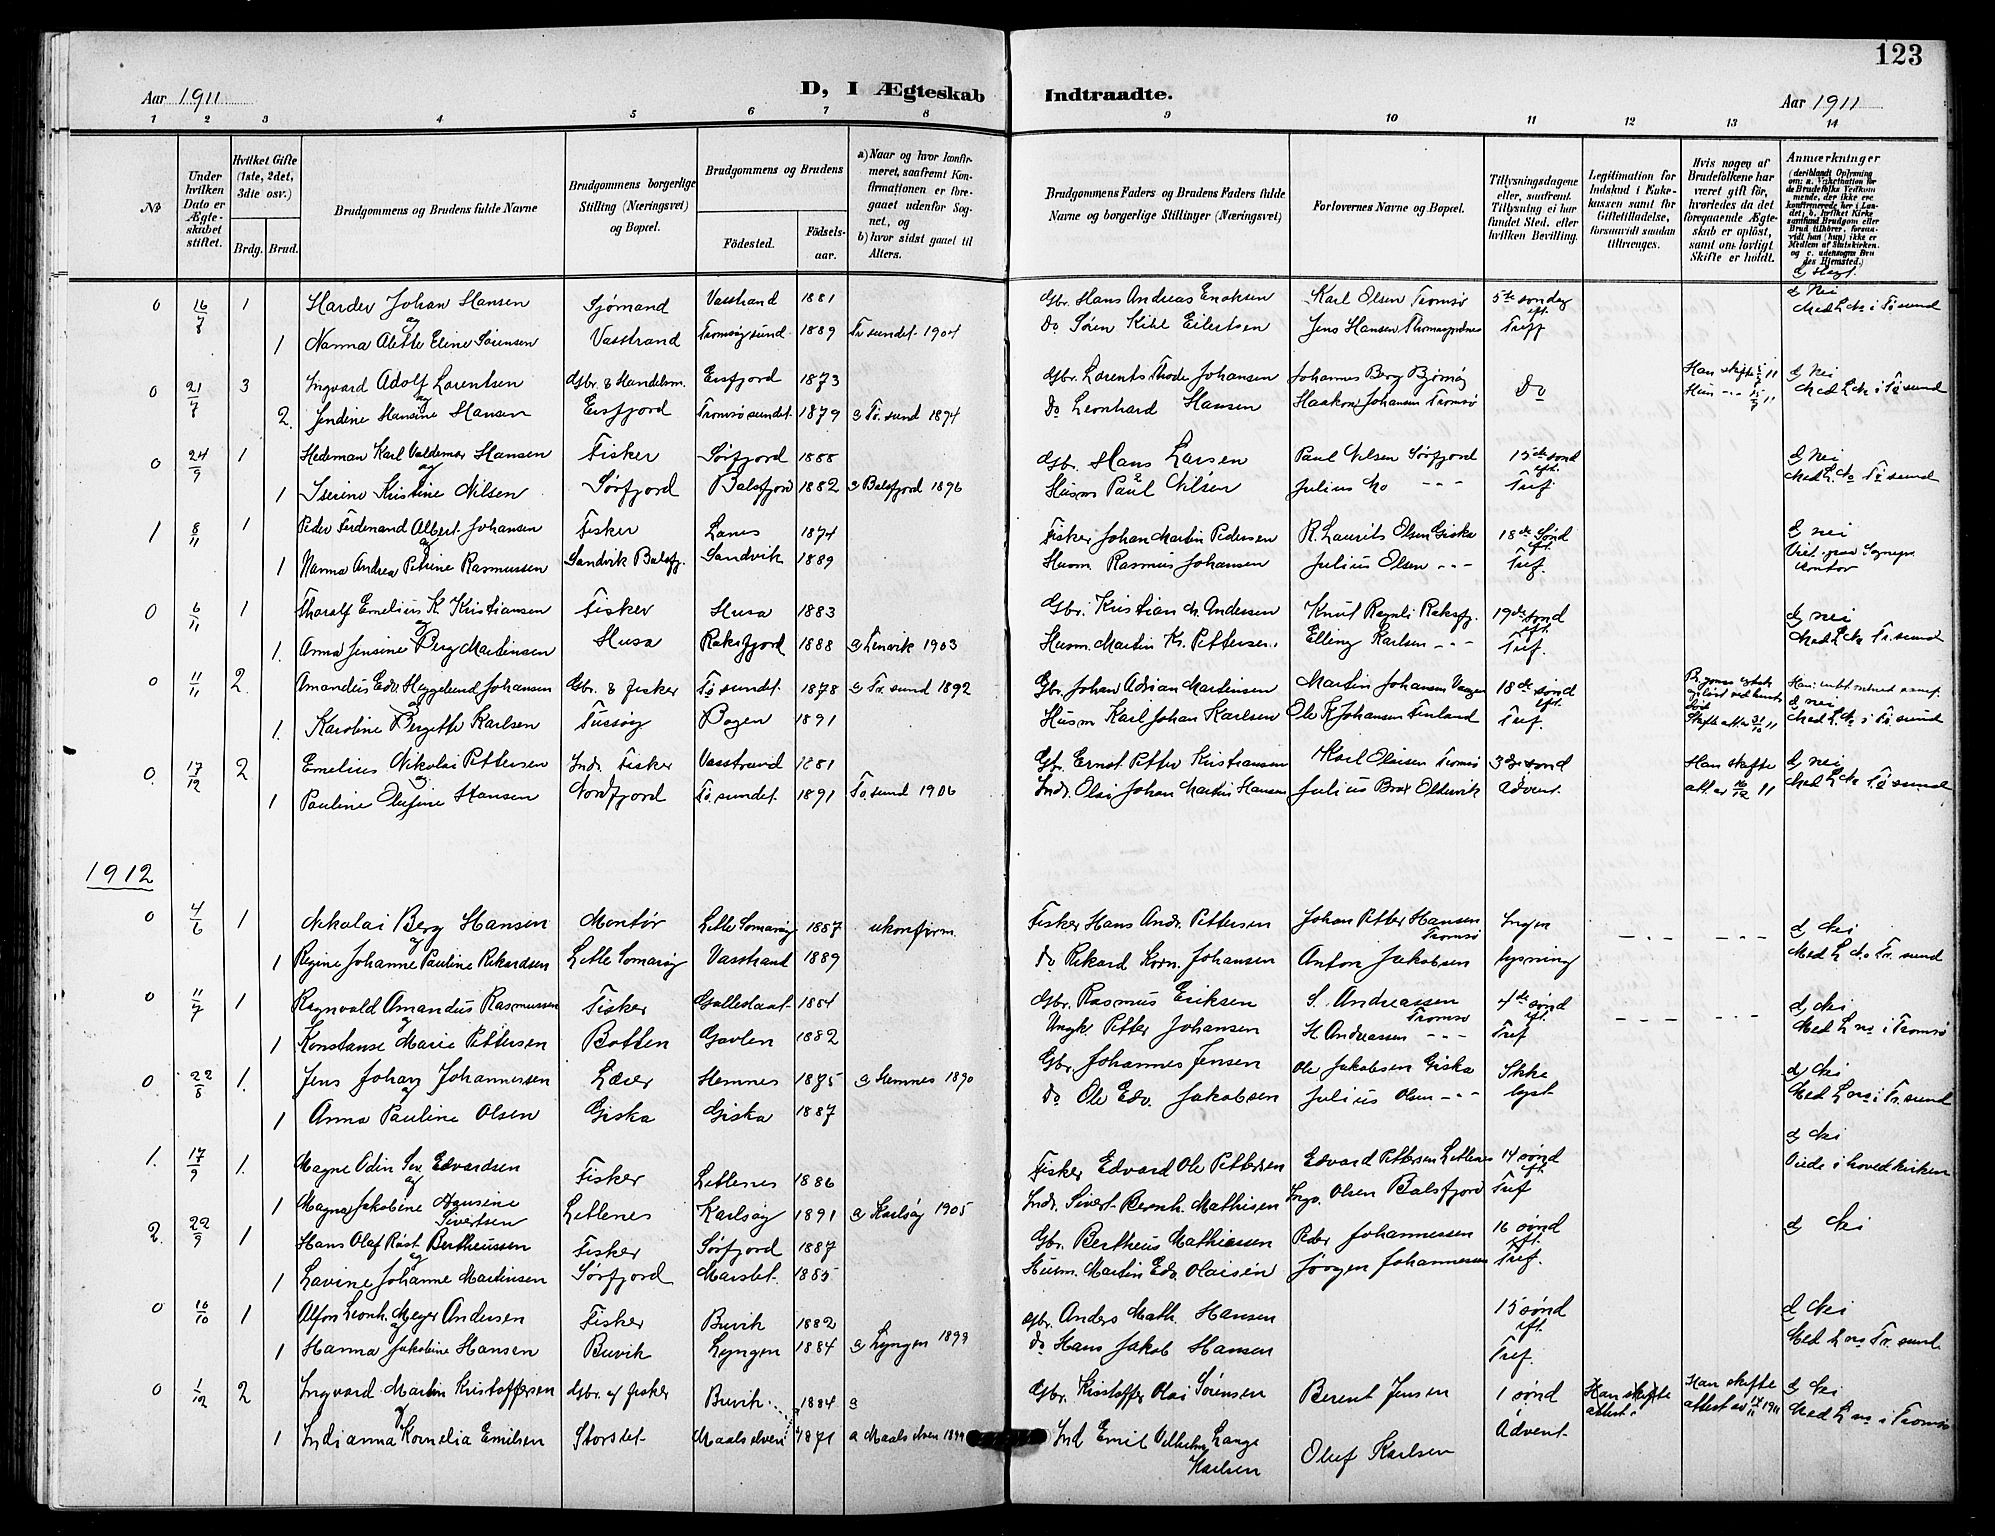 123
Aar 1911
D, I Ægteskab
Indtraadte.
Aar 1911
1 2 3 4 5 6 7 8 9 10 11 12 13 14
No
Under hvilken Dato er Ægteskabet stiftet.
Hvilket Gifte (1ste, 2det, 3die osv.)
Brdg. Brud.
Brudgommens og Brudens fulde Navne
Brudgommens borgerlige Stilling (Næringsvei) og Bopæl.
Brudgommens og Brudens
Fødested.
Fødselsaar.
a) Naar og hvor konfirmeret, saafremt Konfirmationen er foregaaet udenfor Sognet, og
b) hvor sidst gaaet til Alters.
Brudgommens Faders og Brudens Faders fulde Navne og borgerlige Stillinger (Næringsvei)
Forlovernes Navne og Bopæl.
Tillysningsdagene eller, saafremt Tillysning ei har fundet Sted, efter hvilken Bevilling.
Legitimation for Indskud i Enkekassen samt for Giftetilladelse, forsaavidt saadan tiltrænges.
Hvis nogen af Brudefolkene har været gift før, hvorledes da det foregaaende Ægteskab er opløst, samt om lovligt Skifte er holdt.
Anmærkninger
0 16/7 1 Harder Johan Hansen Sjømand Vasstrand 1881 Gbr. Hans Andreas Enoksen Karl Olsen Tromsø 5te søndag eft. d Nei
og
1 Nanna Alette Eline Sørensen Vasstrand Tromsøysund 1889 Tr sundet 1904 Do Søren Kihl Eilertsen Jens Hansen Treff Med L. No i Tø sund
0 21/7 3 Ingvard Adolf Lorentsen Gbr. & Handelsm. Ersfjord 1873 Gbr. Lorents Thode Johansen Johannes Berg Bjørnøy Do Han skifte d Nei
og
2. Jendine Hansine Hansen Ersfjord Tromsøsundet 1879 Tø. sund 1874 Do Leonhard Hansen Haakon Johansen Tromsø Med L No i Tø sund
0 24/9 1 Hedeman Karl Valdemar Hansen Fisker Sørfjord 1888 Gbr. Hans Larsen Paul Nilsen Sørfjord 15de sønd eft. d Nei
og
1 Iserine Kristine Nilsen Sørfjord Balsfjord 1882 Balsfjord 1896 Husm Paul Nilsen Julius No - - - Tref. Med L. No Tø sund
1 8/11 1 Peder Ferdinand Albert Johansen Fisker Lanes 1874 Fisker Johan Martin Pedersen R. Laurits Olsen Giska 18de Sønd eft. d nei
og
1 Nanna Andrea Petrine Rasmussen Sandvik Balsfj. Sandvik 1889 Husm. Rasmus Johansen Julius Olsen - - - Tref. Viet paa Sognepr. kontor
0 6/11 1 Tharalf Emelius K. Kristiansen Fisker Husa 1883 Gbr. Kristian M. Andersen Knut Ragnli Raksfj. 19de sønd eft. d nei
og
1. Anna Jensine Berg Martinsen Husa Raksfjord 1888 Lenvik 1903 Husm. Martin Kr. Pettersen. Elling Karlsen - - - Tref. Med L No Tr. sund
0 11/11 2. Amandus Edv. Heggelund Johansen Gbr. & fisker Tø sundet. 1878 Tr. sund 1892 Gbr. Johan Adrian Martinsen Martin Johansen 18de sønd eft. d nei
og
1. Karoline Bergitte Karlsen Tussøy Bogen 1891 Husm Karl Johan Karlsen Ole K Johansen Finland Tref. Med L. No i Tø sund
0. 17/12 2 Emelius Nikolai Pettersen Indr. Fisker Vasstrand 1881 Gbr. Ernst Petter Kristiansen Karl Olaisen Tromsø 3die sønd Han skifte d nei
og
1 Pauline Olufine Hansen Nordfjord Tø. sundet. 1891 To. sund 1906 Indr. Olai Johan Martin Hansen Julius Brox Oldervik Advent. att. av 16/12 11 Med L No Tø sund
1912
0 4/6 1 Nikolai Berg Hansen Montør Lille Somarøy 1887 ukonfirm. Fisker Hans Andr. Pettersen Johan Petter Hansen Tromsø Ingen - - - - - - d Nei
og
1 Regine Johanne Pauline Rikardsen Lille Somarøy Vasstrand 1889 Do Rikard Korn. Johansen Anton Jakobsen lysning Med L No Tr. sund
0 11/7 1 Ragnvald Amandus Rasmussen Fisker 1884 Gbr. Rasmus Eriksen S. Andreassen Tromsø 4de sønd eft. - - - - - - d Nei
og
1 Konstanse Marie Pettersen Botten Gavlen 1882 Ungk. Petter Johansen H Andreassen - - - Tref Med L no i Tromsø
0 22/8 1. Jens Johan Johannessen Lærer Hemnes 1875 Hemnes 1890 Gbr Johannes Jensen Ole Jakobsen Giska Ikke d Nei
og
1 Anna Pauline Olsen Giska Giska 1887 Do Ole Edv. Jakobsen Julius Olsen - - - lyst Med L no i Tr. sund
1. 17/9 1. Magne Odin Sev. Edvardsen Fisker Letlenes 1886 Fisker Edvard Ole Pettersen Edvard Pettersen Letlenes 14 sønd eft. d Nei
og
1 Magna Jakobine Hansine Sivertsen Letlenes Karlsøy 1891 Karlsøy 1905 Indr. Sivert Bernh. Mathisen Ingv. Olsen Balsfjord Tref Viede i hovedkirken
2. 22/9 1 Hans Olaf Røst Bertheussen Fisker Sørfjord 1887 Gbr. Bertheus Mathiassen Peder Johannessen 16 sønd eft. d Nei
og
1 Lavine Johanne Martinsen Sørfjord Marslet. 1885 Husm. Martin Edv. Olaisen Jørgen Johannessen Tref.
0 16/10 1 Alfon Leonh. Meyer Andersen Fisker Buvik 1882 Gbr. Anders Math. Hansen 15 sønd eft. d Nei
og
1 Hanna Jakobine Hansen Buvik Lyngen 1884 Lyngen 1899 Do Hans Jakob Hansen Tref. Med L no Tr. sund
0 1/12 2 Ingvard Martin Kristoffersen Gbr. og fisker Buvik 1884 Gbr. Kristoffer Olai Sørensen Berent Jensen 1 sønd Han skifte attest. Han skifte attest av 1911 d Nei
og
1 Indianna Kornelia Emilsen Storslet Maalselven 1871 a Maalselven Ind Emil Vilhelm Lange Karlsen Oluf Karlsen Advent Med L no i Tromsø